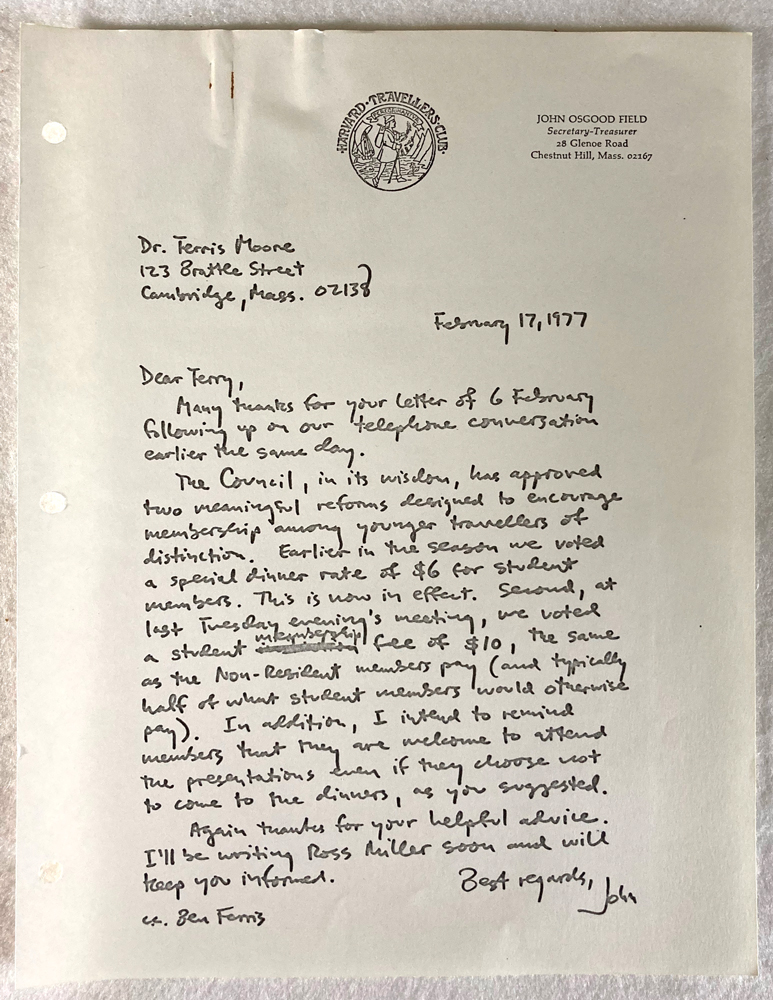 HARVARD·TRAVELLERS·CLUB·
JOHN OSGOOD FIELD
Secretary-Treasurer
28 Glenoe Road
Chestnut Hill, Mass. 02167
Dr. Terris Moore
123 Brattle Street
Cambridge, Mass. 02138
February 17, 1977
Dear Terry,
Many thanks for your letter of 6 February
following up on our telephone conversation
earlier the same day.
The Council, in its wisdom, has approved
two meaningful reforms designed to encourage
membership among younger travellers of
distinction. Earlier in the season we voted
a special dinner rate of $6 for student
members. This is now in effect. Second, at
last Tuesday evening's meeting, we voted
a student membership fee of $10, the same
as the Non-Resident members pay (and typically
half of what student members would otherwise
pay). In addition, I intend to remind
members that they are welcome to attend
the presentations even if they choose not
to come to the dinners, as you suggested.
Again thanks for your helpful advice.
I'll be writing Ross Miller soon and will
keep you informed.
Best regards,
John
cc. Ben Ferris